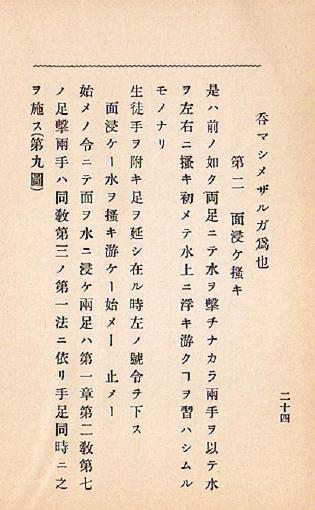 呑マシメザルガ爲也
第二 面浸ケ搔キ
是ハ前ノ如ク兩足ニテ水ヲ擊チナカラ兩手ヲ以テ水
ヲ左右ニ搔キ初メテ水上ニ浮キ游クヿヲ習ハシムル
モノナリ
生徒手ヲ附キ足ヲ延シ在ル時左ノ號令ヲ下ス
面浸ケー水ヲ搔キ游ケー始メー 止メー
始メノ令ニテ面ヲ水ニ浸ケ兩足ハ第一章第二敎第七
ノ足擊兩手ハ同敎第三ノ第一法ニ依リ手足同時ニ之
ヲ施ス(第九圖)
二十四